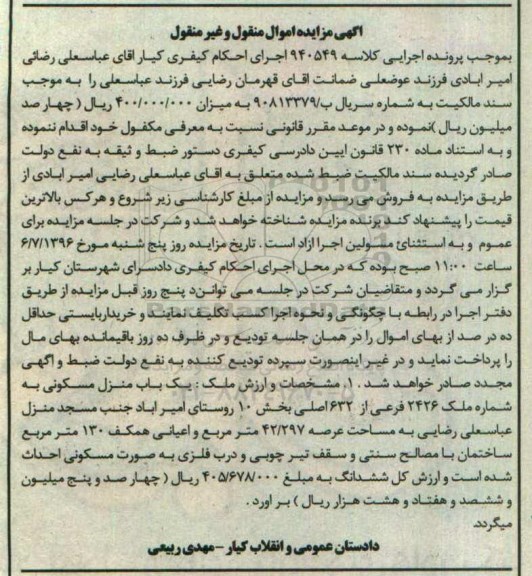 آگهی مزایده اموال منقول و غیر منقول
بموجب پرونده اجرایی کلاسه ۹۴۰۵۴۹ اجرای احکام کیفری کیار اقای عباسعلی رضائی
امیر ابادی فرزند عوضعلی ضمانت اقای قهرمان رضایی فرزند عباسعلی را به موجب
سند مالکیت به شماره سریال ب/۹۰۸۱۳۳۷۹ به میزان ۴۰۰/۰۰۰/۰۰۰ ریال ( چهار صد
میلیون ریال )نموده و در موعد مقرر قانونی نسبت به معرفی مکفول خود اقدام ننموده
و به استناد ماده ۲۳۰ قانون ایین دادرسی کیفری دستور ضبط و ثیقه به نفع دولت
صادر گردیده سند مالکیت ضبط شده متعلق به اقای عباسعلی رضایی امیر ابادی از
طریق مزایده به فروش می رسد و مزایده از مبلغ کارشناسی زیر شروع و هرکس بالاترین
قیمت را پیشنهاد کند برنده مزایده شناخته خواهد شد و شرکت در جلسه مزایده برای
عموم و به استثنائ مسولین اجرا ازاد است . تاریخ مزایده روز پنج شنبه مورخ ۶/۷/۱۳۹۶
ساعت ۱۱:۰۰ صبح بوده که در محل اجرای احکام کیفری دادسرای شهرستان کیار بر
گزار می گردد و متقاضیان شرکت در جلسه می توانند پنج روز قبل مزایده از طریق
دفتر اجرا در رابطه با چگونگی و نحوه اجرا کسب تکلیف نمایند و خریدار بایستی حداقل
ده در صد از بهای اموال را در همان جلسه تودیع و در ظرف ده روز باقیمانده بهای مال
را پرداخت نماید و در غیر اینصورت سپرده تودیع کننده به نفع دولت ضبط و اگهی
مجدد صادر خواهد شد . ۱. مشخصات و ارزش ملک : یک باب منزل مسکونی به
شماره ملک ۲۴۲۶ فرعی از ۶۳۲ اصلی بخش ۱۰ روستای امیر اباد جنب مسجد منزل
عباسعلی رضایی به مساحت عرصه ۴۲/۲۹۷ متر مربع و اعیانی همکف ۱۳۰ متر مربع
ساختمان با مصالح سنتی و سقف تیر چوبی و درب فلزی به صورت مسکونی احداث
شده است و ارزش کل ششدانگ به مبلغ ۴۰۵/۶۷۸/۰۰۰ ریال ( چهار صد و پنج میلیون
و ششصد و هفتاد و هشت هزار ریال ) بر اورد .
میگردد.
دادستان عمومی و انقلاب کیار – مهدی ربیعی